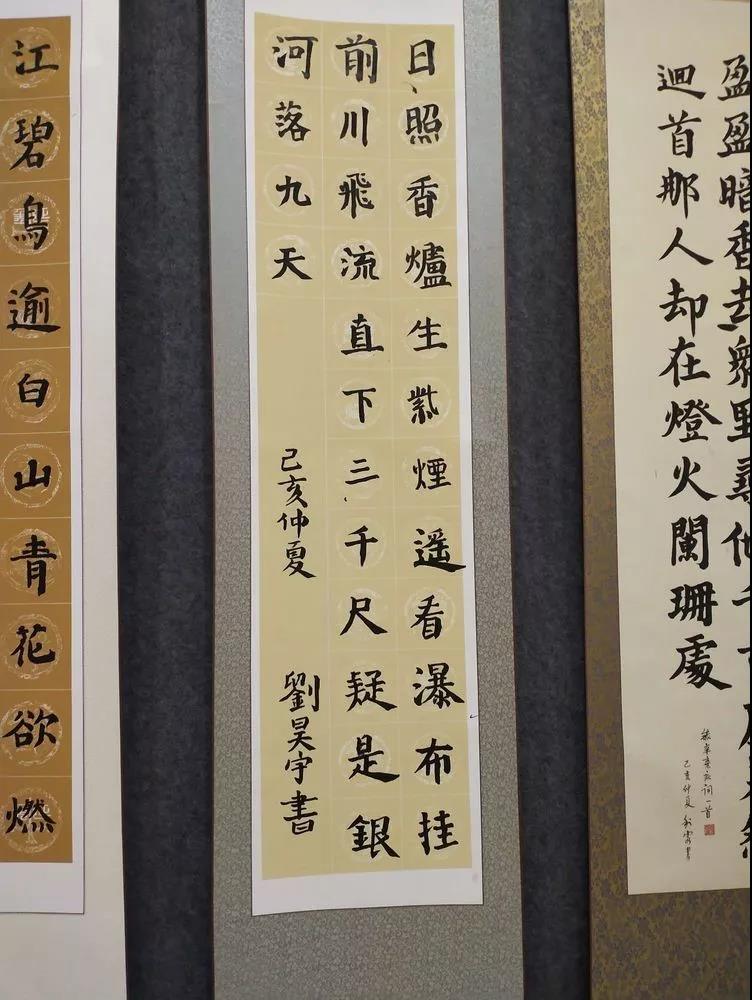 盈盈暗香去衆里尋他千
迴首那人却在燈火闌珊處
録辛棄疾詞一首
己亥仲夏 書
日照香爐生紫煙遥看瀑布挂
前川飛流直下三千尺疑是銀
河落九天
己亥仲夏 劉昊宇書
江碧鳥逾白山青花欲燃